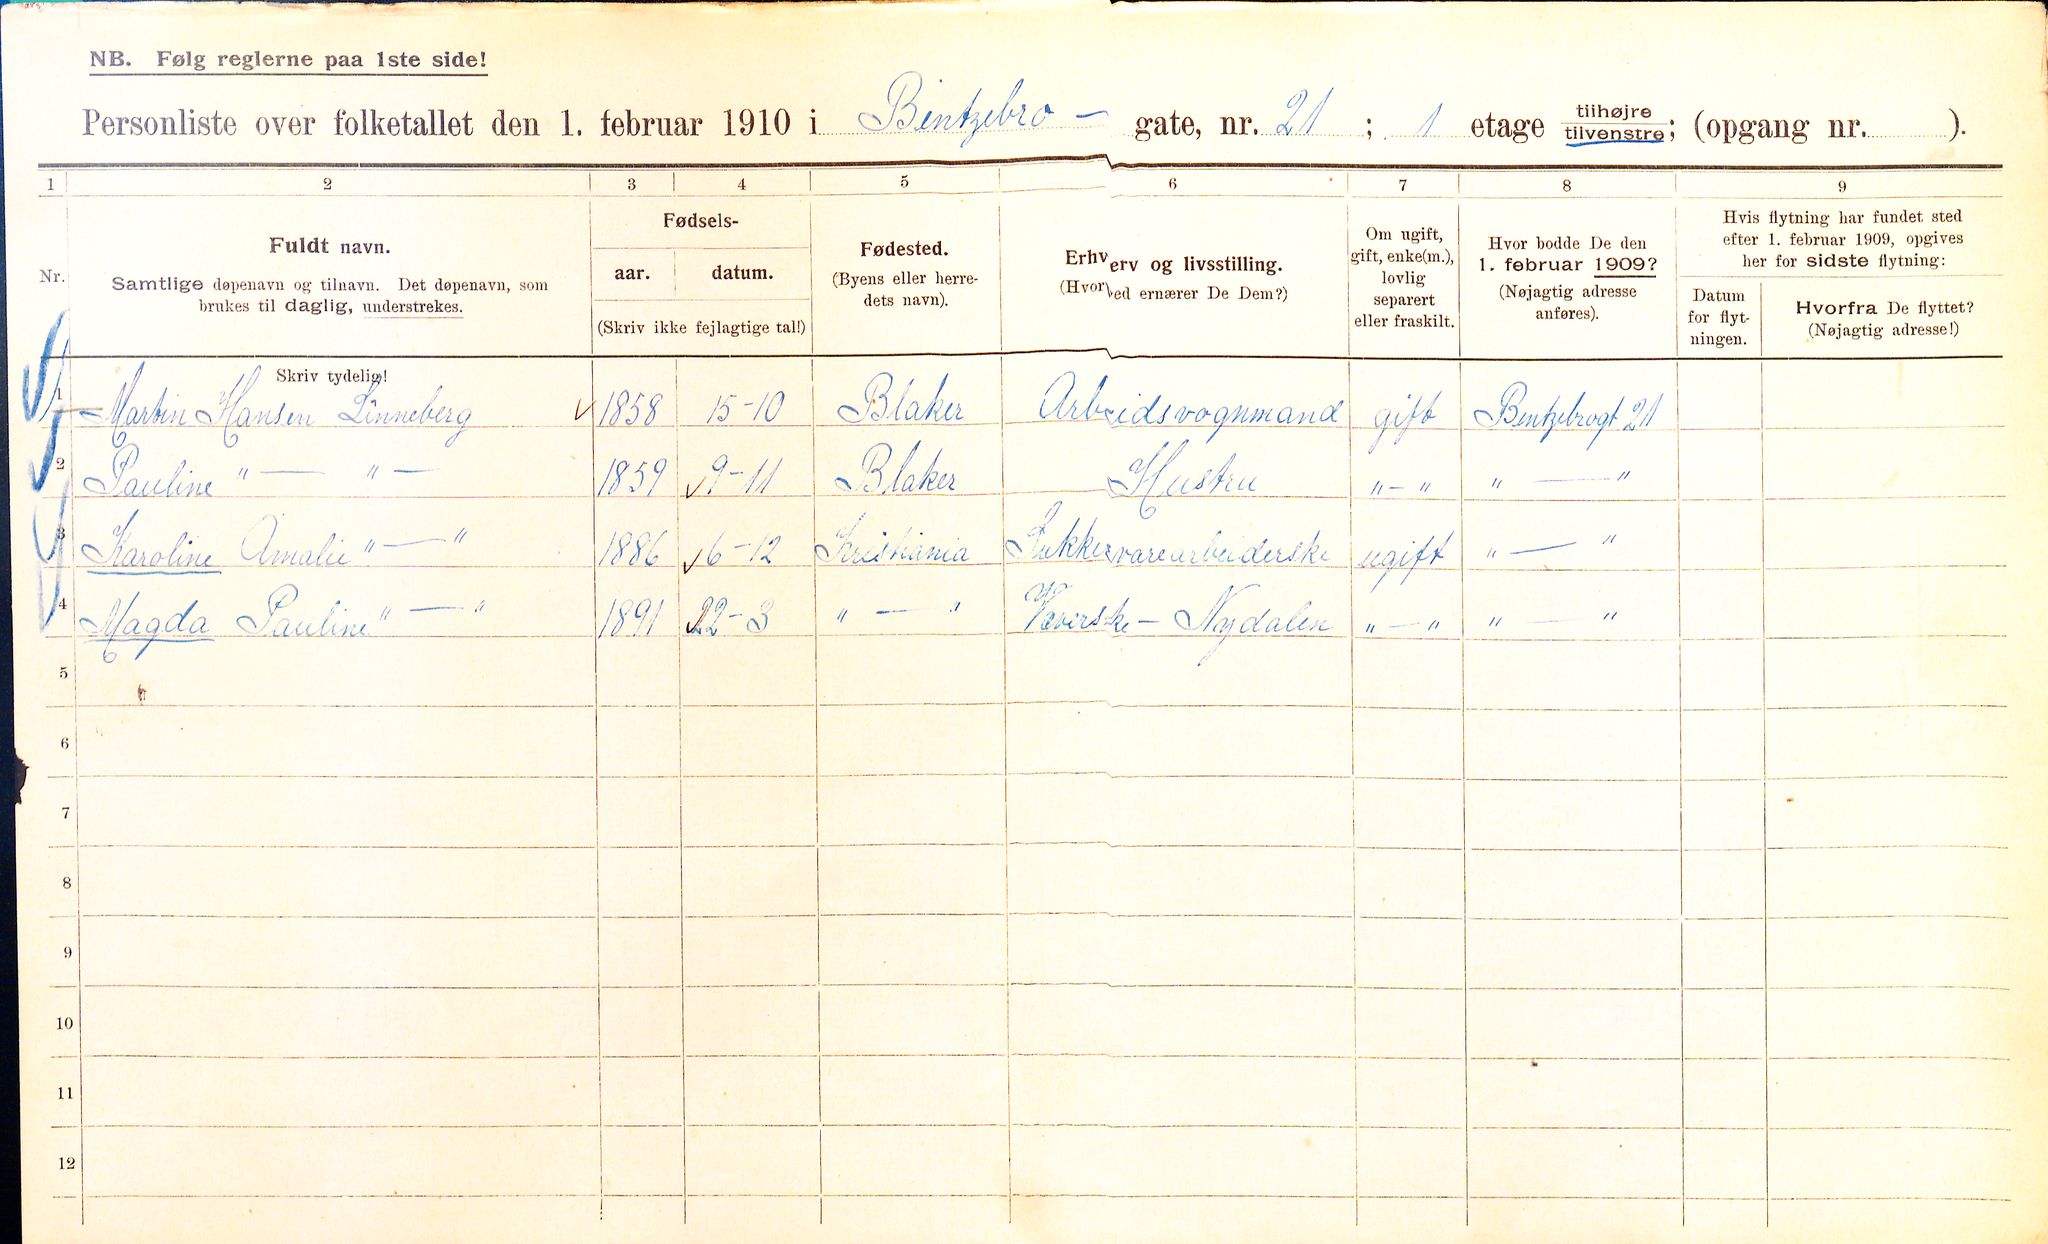 NB. Følg reglerne paa 1ste side!
Personliste over folketallet den 1. februar 1910 i Bentzebro — gate, nr. 21 ; 1 etage tilhøjre tilvenstre; (opgang nr. ).
1 2 3 4 5 6 7 8 9
Nr.
Fuldt navn.
Samtlige døpenavn og tilnavn. Det døpenavn, som
brukes til daglig, understrekes.
Skriv tydelig!
Fødsels-
aar. datum.
(Skriv ikke fejlagtige tal!)
Fødested.
(Byens eller herre-
dets navn).
Erhverv og livsstilling.
(Hvorved ernærer De Dem?)
Om ugift,
gift, enke(m.),
lovlig
separert
eller fraskilt.
Hvor bodde De den
1. februar 1909?
(Nøjagtig adresse
anføres).
Hvis flytning har fundet sted
efter 1. februar 1909, opgives
her for sidste flytning:
Datum
for flyt-
ningen.
Hvorfra De flyttet?
(Nøjagtig adresse!)
1 Martin Hansen Linneberg 1858 15-10 Blaker Arbeidsvognmand gift Bentzebrogt 21
2 Pauline " — " — 1859 9-11 Blaker Hustru " — " " — "
3 Karoline Amalie " — " 1886 6-12 Kristiania Sukkervarearbeiderske ugift " — "
4 Magda Pauline " — " 1891 22-3 " — " Væverske — Nydalen " — " " — "
5
6
7
8
9
10
11
12